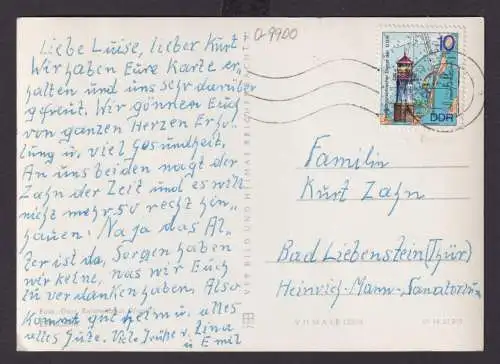 Q-9900
Liebe Luise, lieber Kurt
Wir haben Eure Karte er-
halten und uns sehr darüber
gefreut. Wir gönnen Euch
von ganzen Herzen Erho-
lung u. viel Gesundheit,
An uns beiden nagt der
Zahn der Zeit und es will
nicht mehr so recht hin-
hauen. Na ja das Al-
ter ist da, Sorgen haben
wir keine, was wir Euch
zu verdanken haben. Also
kommt gut heim u. alles
alles Gute. Viele Grüße v. Lina
u Emil
10
DDR
Familie
Kurt Zahn
Bad Liebenstein (Thür)
Heinrich-Mann-Sanatorium
VEB BILD UND HEIMAT REICHENBACH